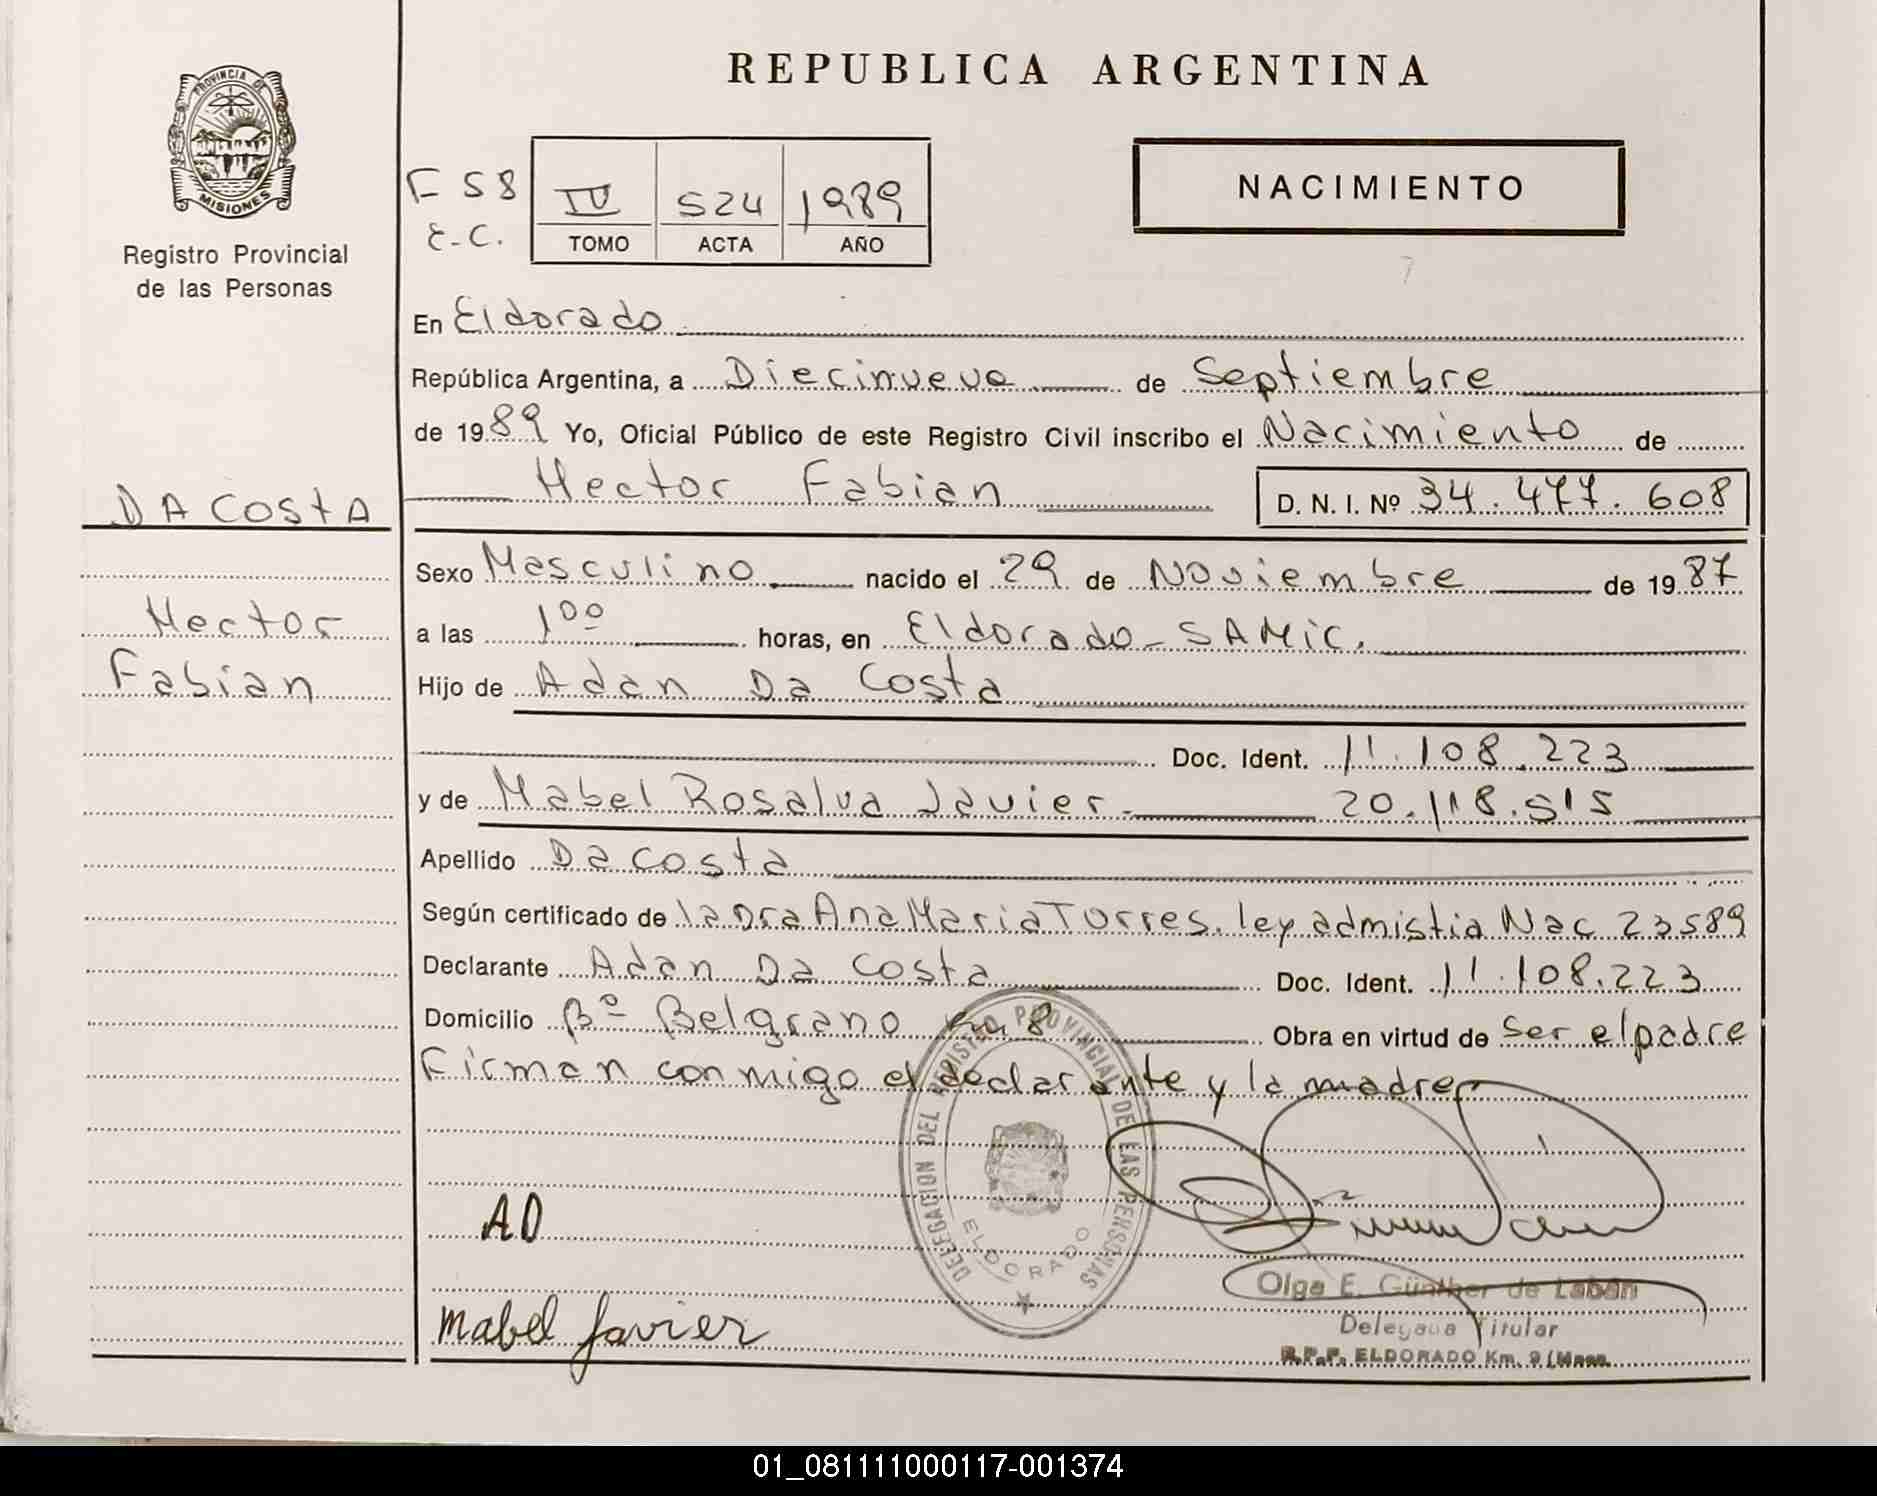 REPUBLICA ARGENTINA
PROVINCIA DE
MISIONES
Registro Provincial
de las Personas
F 58
E.C.
IV 524 1989
TOMO ACTA AÑO
NACIMIENTO
En Eldorado
República Argentina, a Diecinueve de Septiembre
de 1989 Yo, Oficial Público de este Registro Civil inscribo el Nacimiento de
Hector Fabian D. N. I. Nº 34.477.608
DA COSTA
Hector
Fabian
Sexo Masculino nacido el 29 de Noviembre de 1987
a las 1 00 horas, en Eldorado - SAMIC.
Hijo de Adan Da Costa
Doc. Ident. 11.108.223
y de Mabel Rosalva Javier 20.118.515
Apellido Da Costa
Según certificado de la Dra Ana Maria Torres. ley admistia Nac 23589
Declarante Adan Da Costa Doc. Ident. 11.108.223
Domicilio Bº Belgrano km 8 Obra en virtud de Ser el padre
Firman conmigo el declarante y la madre
DELEGACION DEL REGISTRO PROVINCIAL DE LAS PERSONAS
ELDORADO
A.D
Mabel Javier
Olga E. Günther de Labán
Delegada Titular
R.P.P. ELDORADO Km. 9 (Mnes.
01_081111000117-001374